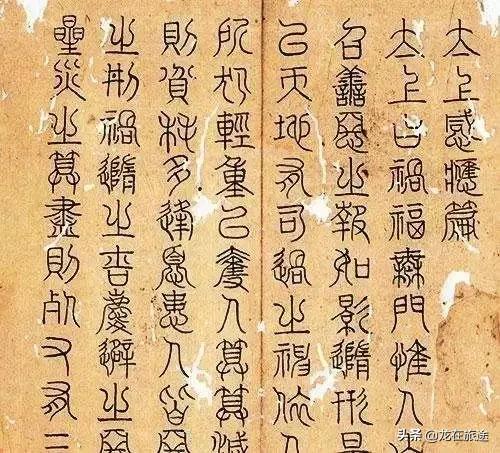 太上感應篇
太上曰禍福無門惟人
召善惡之報如影隨形是
以天地有司過之神依人
所犯輕重以奪人算算減
則貧耗多逢憂患人皆惡
之刑禍隨之吉慶避之惡
星災之算盡則死又有三
头条 @龙在旅途